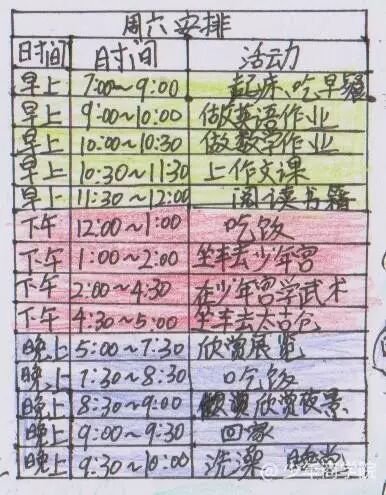 周六安排
日时间 时间 活动
早上 7:00~9:00 起床、吃早餐
早上 9:00~10:00 做英语作业
早上 10:00~10:30 做数学作业
早上 10:30~11:30 上作文课
早上 11:30~12:00 阅读书籍
下午 12:00~1:00 吃饭
下午 1:00~2:00 坐车去少年宫
下午 2:00~4:30 在少年宫学武术
下午 4:30~5:00 坐车去太古仓
晚上 5:00~7:30 欣赏展览
晚上 7:30~8:30 吃饭
晚上 8:30~9:00 欣赏夜景
晚上 9:00~9:30 回家
晚上 9:30~10:00 洗澡、睡觉
少年商学院